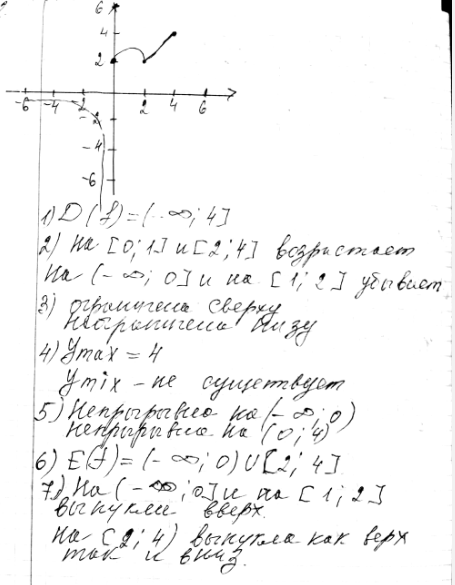 6
4
2
-6 -4 -2 2 4 6
-2
-4
-6
1) D(f)=(-∞; 4]
2) На [0; 1] и [2; 4] возристает
На (-∞; 0] и на [1; 2] убывает
3) ограничена сверху
неограничена внизу
4) Ymax = 4
Ymix - не существует
5) Непрырывна на (-∞; 0)
непрырывна на (0; 4)
6) E(f)=(-∞; 0)U[2; 4]
7) На (-∞; 0] и на [1; 2]
выпукла вверх.
на [2; 4) выпукла как верх
так и вниз.